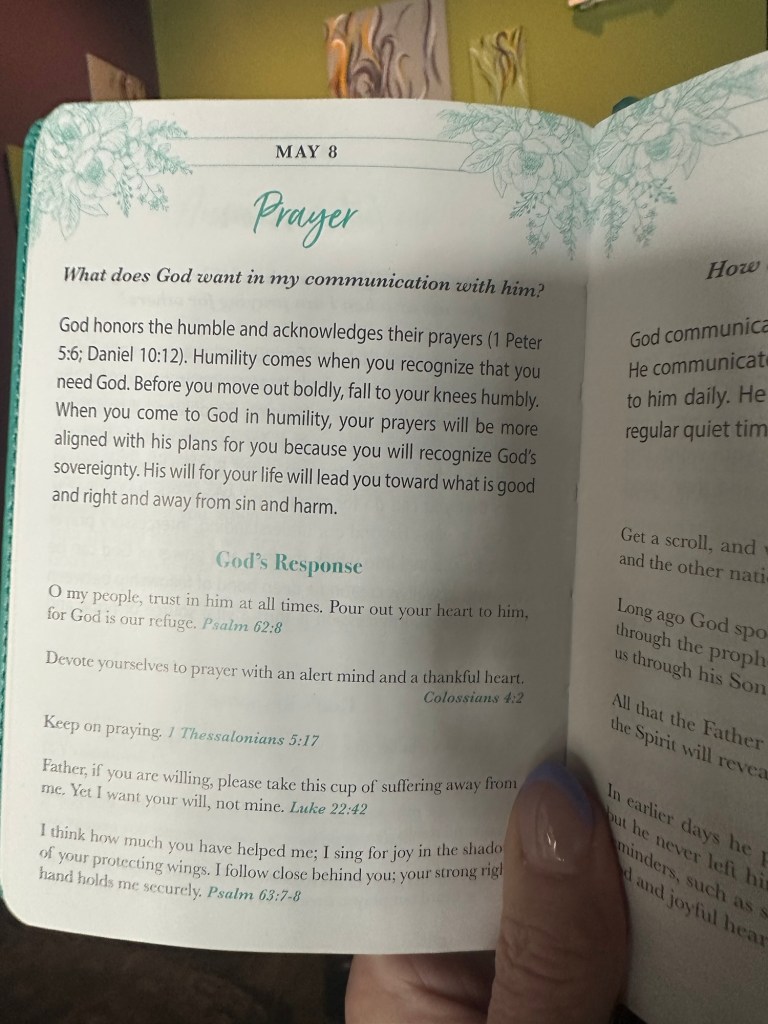 MAY 8
Prayer
What does God want in my communication with him?
God honors the humble and acknowledges their prayers (1 Peter
5:6; Daniel 10:12). Humility comes when you recognize that you
need God. Before you move out boldly, fall to your knees humbly.
When you come to God in humility, your prayers will be more
aligned with his plans for you because you will recognize God's
sovereignty. His will for your life will lead you toward what is good
and right and away from sin and harm.
God's Response
O my people, trust in him at all times. Pour out your heart to him,
for God is our refuge. Psalm 62:8
Devote yourselves to prayer with an alert mind and a thankful heart.
Colossians 4:2
Keep on praying. 1 Thessalonians 5:17
Father, if you are willing, please take this cup of suffering away from
me. Yet I want your will, not mine. Luke 22:42
I think how much you have helped me; I sing for joy in the
of your protecting wings. I follow close behind you; your strong
hand holds me securely. Psalm 63:7-8
How
God
He
to him daily. He
regular quiet
Get a scroll, and
and the other
Long ago God
through the
us through his Son
All that the Father
the Spirit will
In earlier days he
but he never left
such as
and joyful